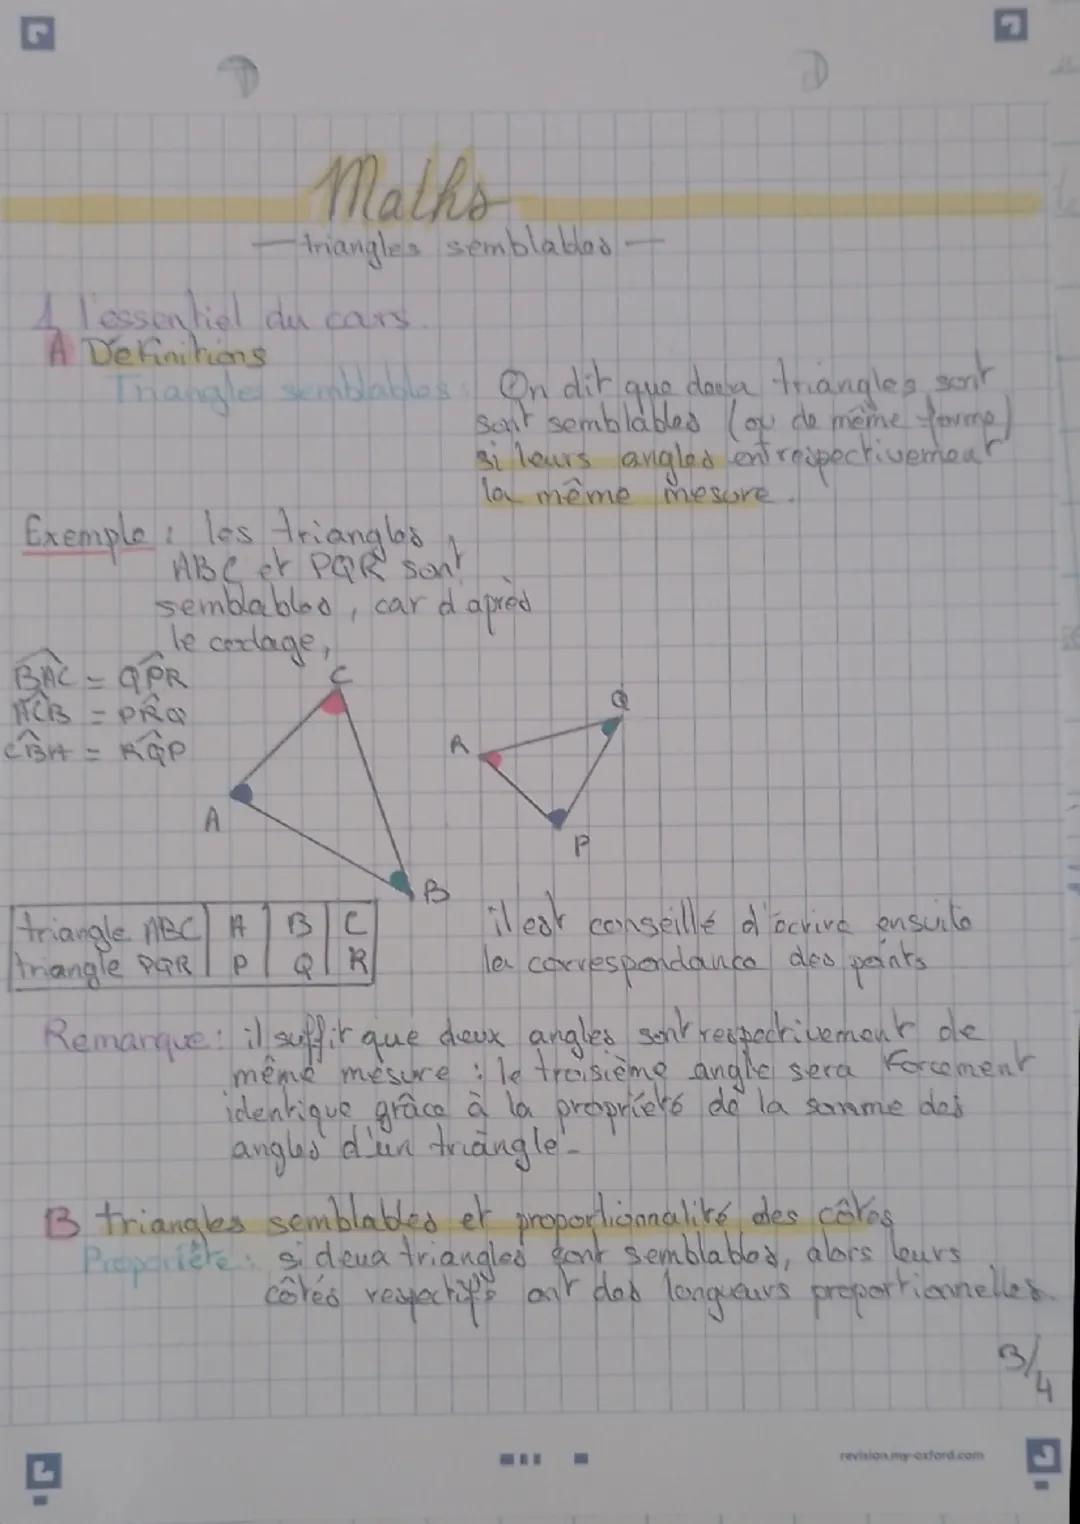 Maths
— triangles semblables —
1 l'essentiel du cours.
A Definitions
Triangles semblables : On dit que deux triangles sont
sont semblables (ou de même forme)
si leurs angles ont respectivement
la même mesure.
Exemple : les triangles
ABC et PQR sont
semblables, car d'après
le codage,
B̂AC = Q̂PR
ÂCB = PR̂Q
CB̂A = RQ̂P
C
Q
R
A
P
B
triangle ABC | A | B | C
triangle PQR | P | Q | R
il est conseillé d'écrire ensuite
la correspondance des points
Remarque : il suffit que deux angles sont respectivement de
même mesure : le troisième angle sera forcement
identique grâce à la propriété de la somme des
angles d'un triangle.
B triangles semblables et proportionnalité des côtés
Propriété : si deux triangles sont semblables, alors leurs
côtés respectifs ont des longueurs proportionnelles.
3/4
revision.my-oxford.com